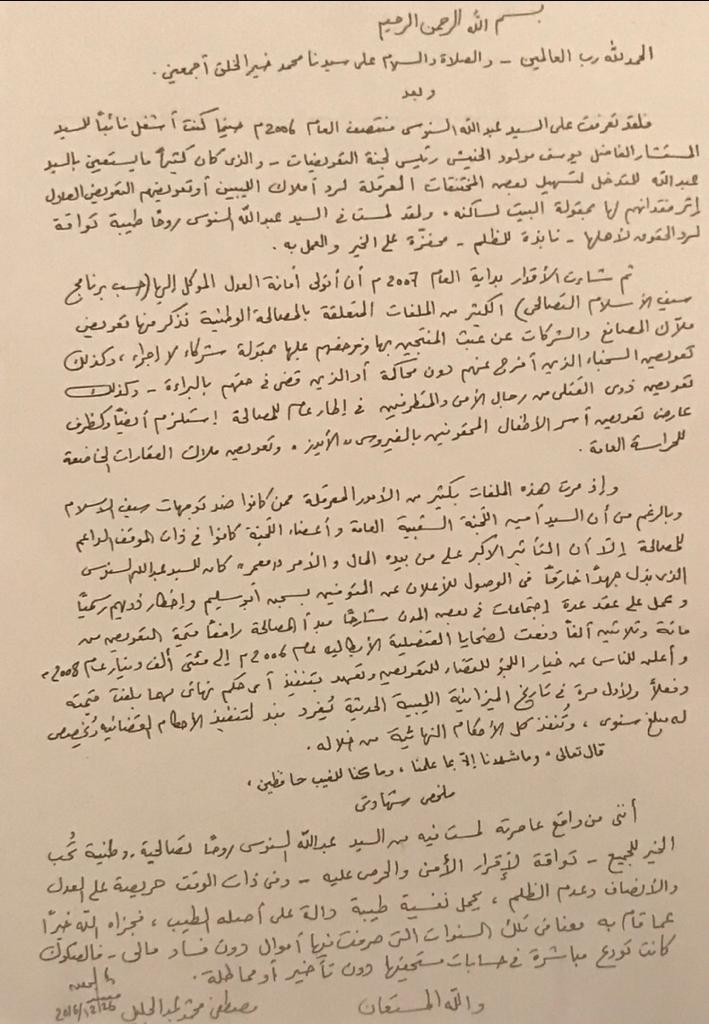 بسم الله الرحمن الرحيم
الحمد لله رب العالمين - والصلاة والسلام على سيدنا محمد خير الخلق أجمعين .
وبعد
فلقد تعرفت على السيد عبدالله السنوسي منتصف العام 2006م حينما كنت أشغل نائباً للسيد
المستشار الفاضل يوسف مولود الحنيش رئيس لجنة التعويضات - والذي كان كثيراً ما يستعين بالسيد
عبدالله للتدخل لتسهيل بعض المختنقات المعرقلة لرد أملاك الليبيين أو تعويضهم التعويض العادل
إثر فقدانهم لها بمقولة البيت لساكنه . ولقد لمست في السيد عبدالله السنوسي روحاً طيبة تواقة
لرد الحقوق لأهلها - نابذة للظلم - محفزة على الخير والعمل به .
ثم شاءت الأقدار بداية العام 2007م أن أتولى أمانة العدل الموكل إليها (حسب برنامج
سيف الأسلام التصالحي) الكثير من الملفات المتعلقة بالمصالحة الوطنية نذكر منها تعويض
ملاك المصانع والشركات عن عبث المنتجين بها وزحفهم عليها بمقولة شركاء لا إجراء ، وكذلك
تعويض السجناء الذين أفرج عنهم دون محاكمة أو الذين قضى في حقهم بالبراءة - وكذلك
تعويض ذوي القتلى من رجال الأمن والمتطرفين في إطار عام للمصالحة إستلزم أيضاً وكظرف
عارض تعويض أسر الأطفال المحقونين بالفيروس ،، الأيدز . وتعويض ملاك العقارات الخاضعة
للحراسة العامة .
وإذ مرت هذه الملفات بكثير من الأمور المعرقلة ممن كانوا ضد توجهات سيف الاسلام
وبالرغم من أن السيد أمين اللجنة الشعبية العامة وأعضاء اللجنة كانوا في ذات الموقف الداعم
للمصالحة إلا أن التأثير الأكبر على من بيده المال والأمر ،،معمر،، كان للسيد عبدالله السنوسي
الذي بذل جهداً خارقاً في الوصول للأعلان عن المتوفين بسجن أبوسليم وإخطار ذويهم رسمياً
وعمل على عقد عدة إجتماعات في بعض المدن شارحاً مبدأ المصالحة رافعاً قيمة التعويض من
مائة وثلاثين ألفاً دفعت لضحايا القنصلية الأيطاليه عام 2006م إلى مئتي ألف دينار عام 2008م
وأعلن للناس عن خيار اللجؤ للقضاء للتعويض وتعهد بتنفيذ أي حكم نهائي مهما بلغت قيمته
وفعلاً ولأول مرة في تاريخ الميزانية الليبية الحديثة يُفرد بند لتنفيذ الأحكام القضائيه ويُخصص
له مبلغ سنوي ، وتُنفذ كل الأحكام النهائية من خلاله .
قال تعالى ، وما شهدنا إلا بما علمنا ، وما كنا للغيب حافظين ،
ملخص شهادتي
أنني من واقع عاصرته لمست فيه من السيد عبدالله السنوسي روحاً تصالحية - وطنية تُحب
الخير للجميع - تواقة لإقرار الأمن والحرص عليه - وفي ذات الوقت حريصة على العدل
والأنصاف وعدم الظلم ، يحمل نفسية طيبة دالة على أصله الطيب ، فجزاه الله خيراً
عما قام به معنا في تلك السنوات التي صرفت فيها أموال دون فساد مالي - فالصكوك
كانت تودع مباشرة في حسابات مستحقيها دون تأخير أو مماطلة .
والله المستعان
مصطفى محمد عبدالجليل
2016/12/26